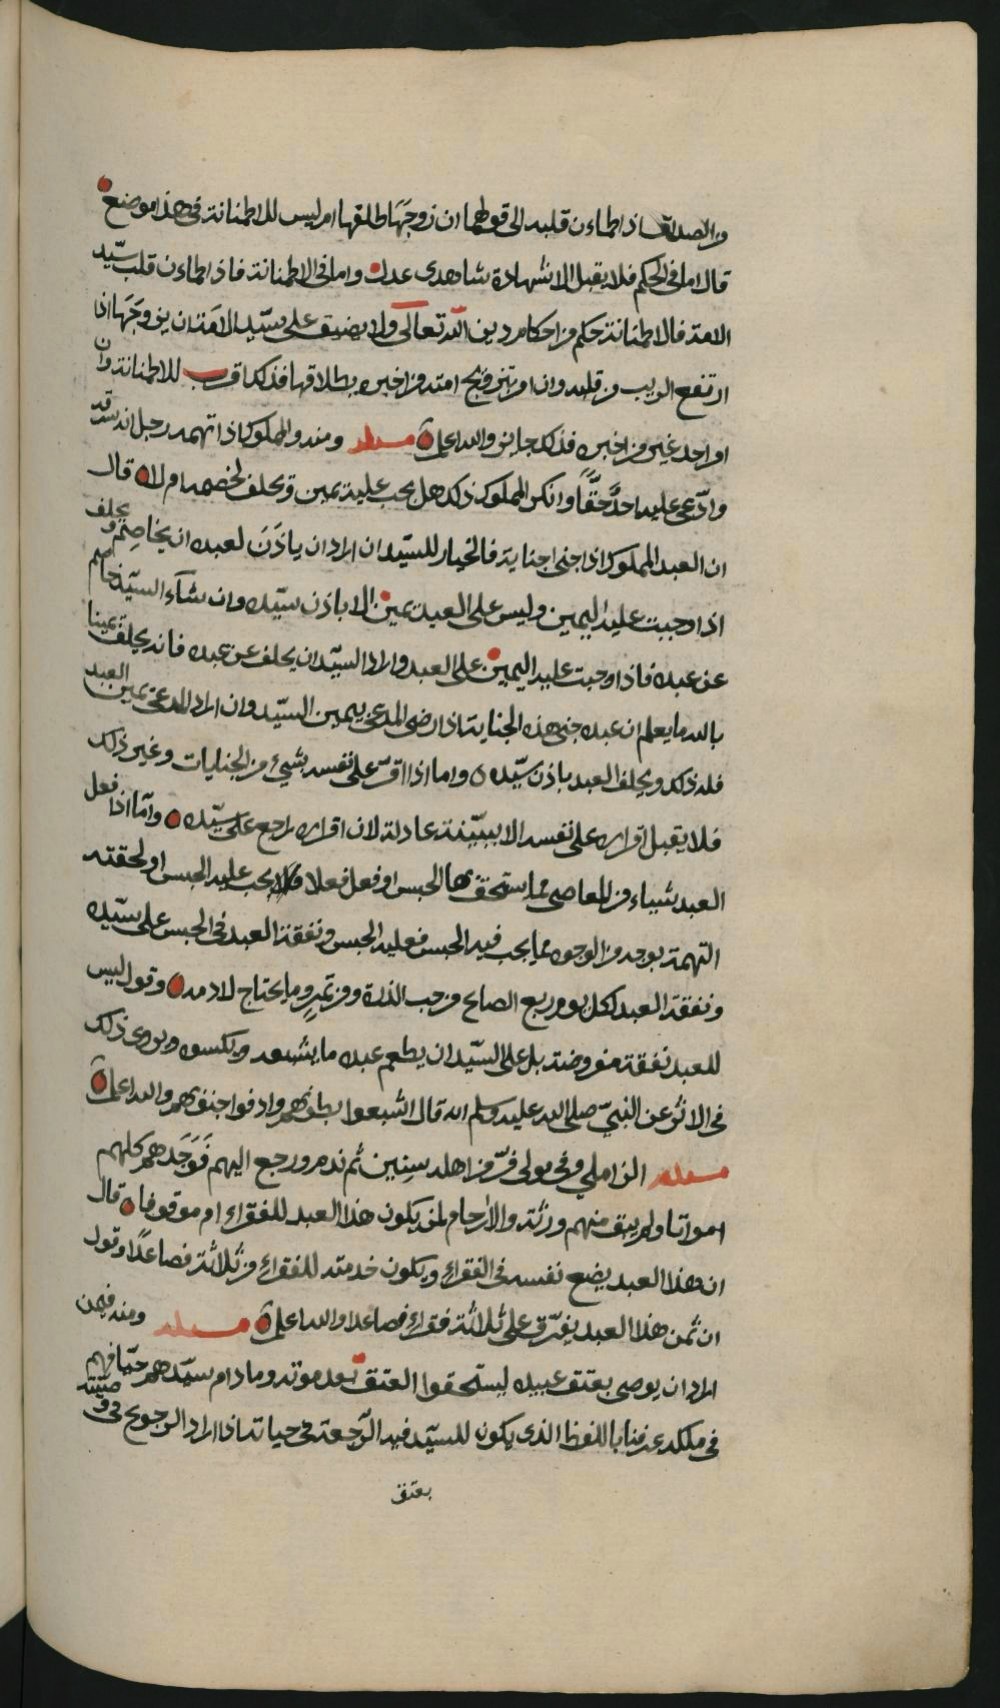 والصداقة اذ اطماءن قلبه الى قولهما ان زوجَهَا طلقها ام ليس للاطمنانة في هذا موضع
قال اما في الحكم فلا يقبل الا شهادة شاهدى عدل واما في الاطمنانة فاذ اطماءن قلب سيّد
الامة فالاطمنانة حكم من احكام دين الله تعالى ولا يضيق على سيّد الامة ان يزوجَهَا اذا
ارتفع الريب من قلبه وان امر بتزويج امته من اخبره بطلاقها فذلك اقرب للاطمنانة وان
امر احد غير من اخبره فذلك جايز والله اعلم مسئلة ومنه والمملوك اذا اتهمه رجل انه سرقه
وادّعى عليه احدٌ حقّاً وانكر المملوك ذلك هل يجب عليه يمين ويحلف لخصمه ام لا قال
ان العبد المملوك اذا جنى جناية فالخيار للسيّد ان اراد ان ياذَنَ لعبده ان يخاصم ويحلف
اذا وجبت عليه اليمين وليس على العبد يمين الا باذن سيّده وان شآء السيّد خاصم
عن عبده فاذا وجبت عليه اليمين على العبد واراد السيّد ان يحلف عن عبده فانه يحلف يمينا
بالله ما يعلم ان عبده جنى هذه الجناية اذا رضى المدعي بيمين السيّد وان اراد المدعي يمين العبد
فله ذلك ويحلف العبد باذن سيّده ٥ واما اذا اقرّ على نفسه بشيء من الجنايات وغير ذلك
فلا يقبل اقراره على نفسه الا ببيّنة عادلة لان اقراره راجع على سيّده وامّا اذا فعل
العبد شيياء من المعاصي مما يستحق بها الحبس او فعل فعلا يجب عليه الحبس او لحقته
التهمة بوجه من الوجوه مما يجب فيه الحبس فعليه الحبس ونفقة العبد في الحبس على سيّده
ونفقة العبد لكل يوم ربع الصاع من حب الذرة ومن تمرٍ وما يحتاج لادمه وقول ليس
للعبد نفقة مفروضة بل على السيّد ان يطعم عبده ما يشبعه ويكسوه ويروى ذلك
في الاثر عن النبيّ صلى الله عليه وسلم انه قال اشبعوا بطونهم وادفوا جنوبهم والله اعلم
مسئلة الزاملي وفي مولى فرّ من اهله سِنِين ثم ندم ورجع اليهم فَوَجَدهم كلهم
امواتا ولم يبق منهم ورثة والارحام لمن يكون هذا العبد للفقراء ام موقوفا قال
ان هذا العبد يضع نفسه في الفقراء ويكون خدمته للفقراء من ثلاثة فصاعدًا وقول
ان ثمن هذا العبد يفرّق على ثلاثة فقراء فصاعدا والله اعلم مسئلة ومنه فيمن
اراد ان يوصى بعتق عبيده ليستحقوا العتق بعد موته وما دام سيّدهم حيّا فهم
في ملكه عرفنا باللفظ الذى يكون للسيّد فيه الرّجعة في حياته اذا اراد الرجوع في وصيّته
بعتق